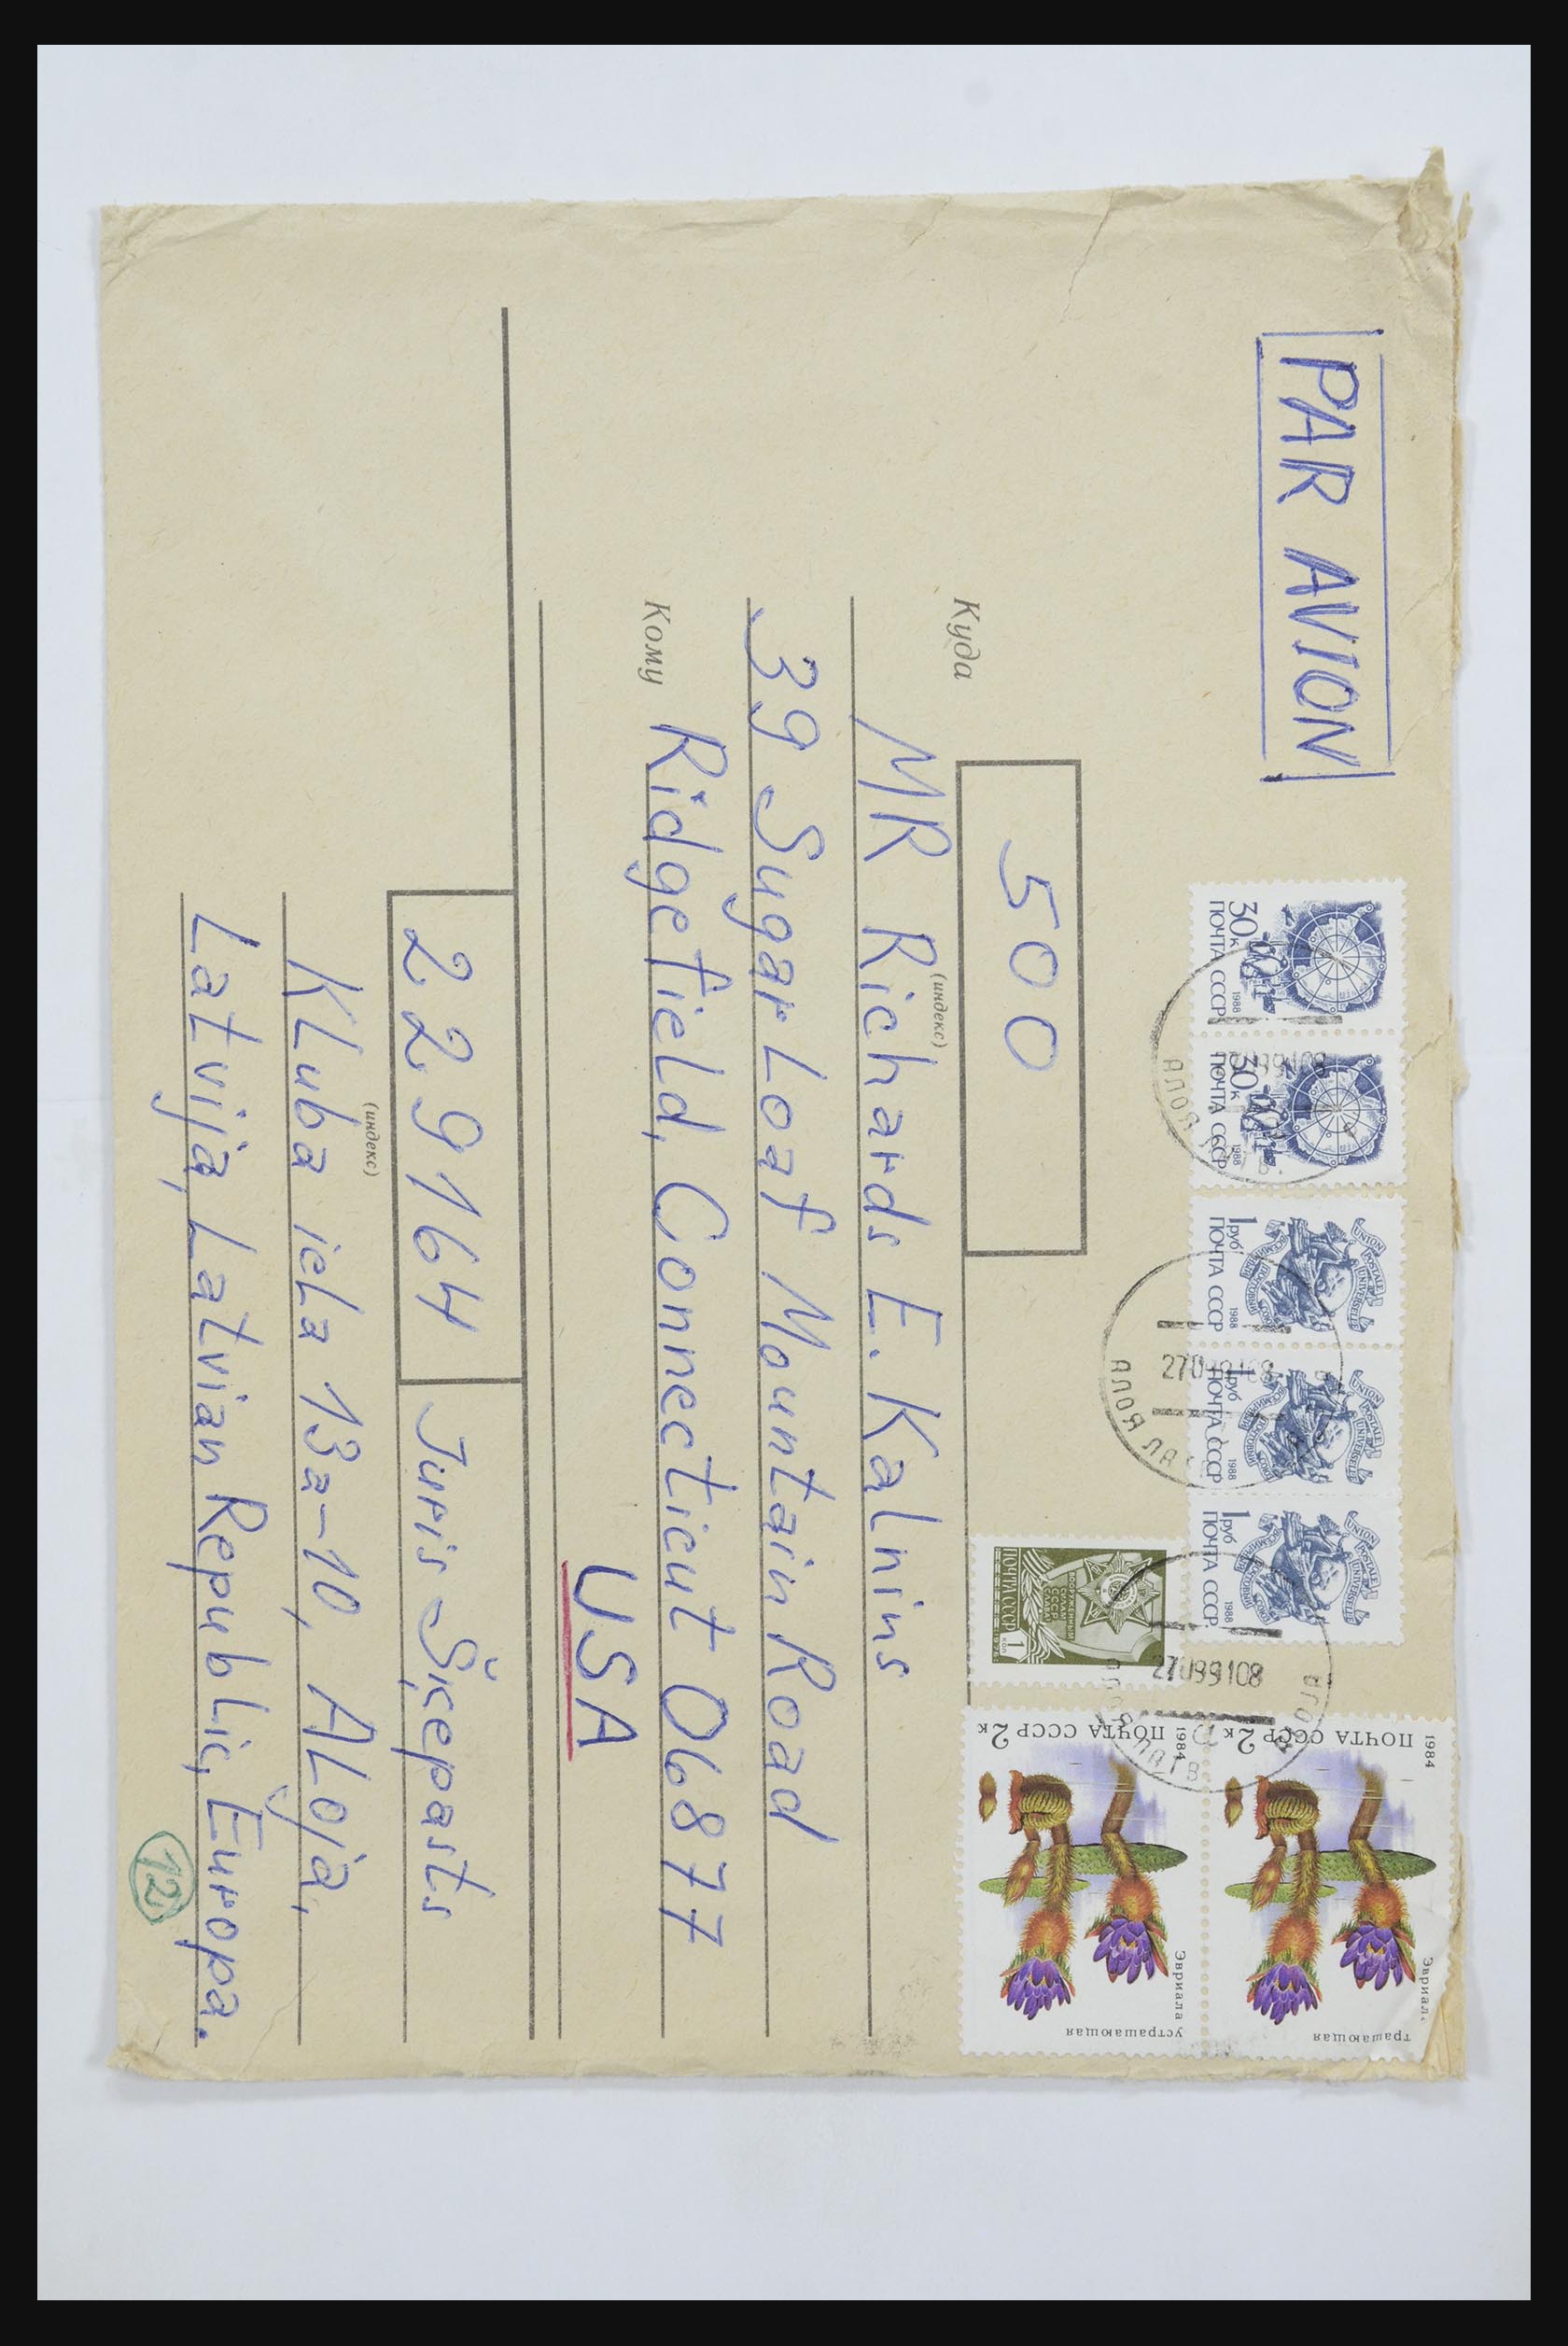 PAR AVION
30к
ПОЧТА СССР
1988
30к
ПОЧТА СССР
1988
UNION POSTALE UNIVERSELLE
ВСЕМИРНЫЙ ПОЧТОВЫЙ СОЮЗ
1руб
ПОЧТА СССР
1988
UNION POSTALE UNIVERSELLE
ВСЕМИРНЫЙ ПОЧТОВЫЙ СОЮЗ
1руб
ПОЧТА СССР
1988
UNION POSTALE UNIVERSELLE
ВСЕМИРНЫЙ ПОЧТОВЫЙ СОЮЗ
1руб
ПОЧТА СССР
1988
АЛОЯ
АЛОЯ
27099108
АЛОЯ ЛАТВ
ВООРУЖЕННЫМ
СИЛАМ
СССР
СЛАВА
ПОЧТА СССР
1 коп
1984
ПОЧТА СССР 2к
1984
ПОЧТА СССР 2к
Эвриала устрашающая
500
(индекс)
Куда
MR Richards E. Kalnins
39 Sugar Loaf Mountain Road
Кому Ridgefield, Connecticut 06877
USA
229164
Juris Šķepasts
(индекс)
KLuba iela 13a-10, ALoja,
Latvija, Latvian Republic, Europa.
12